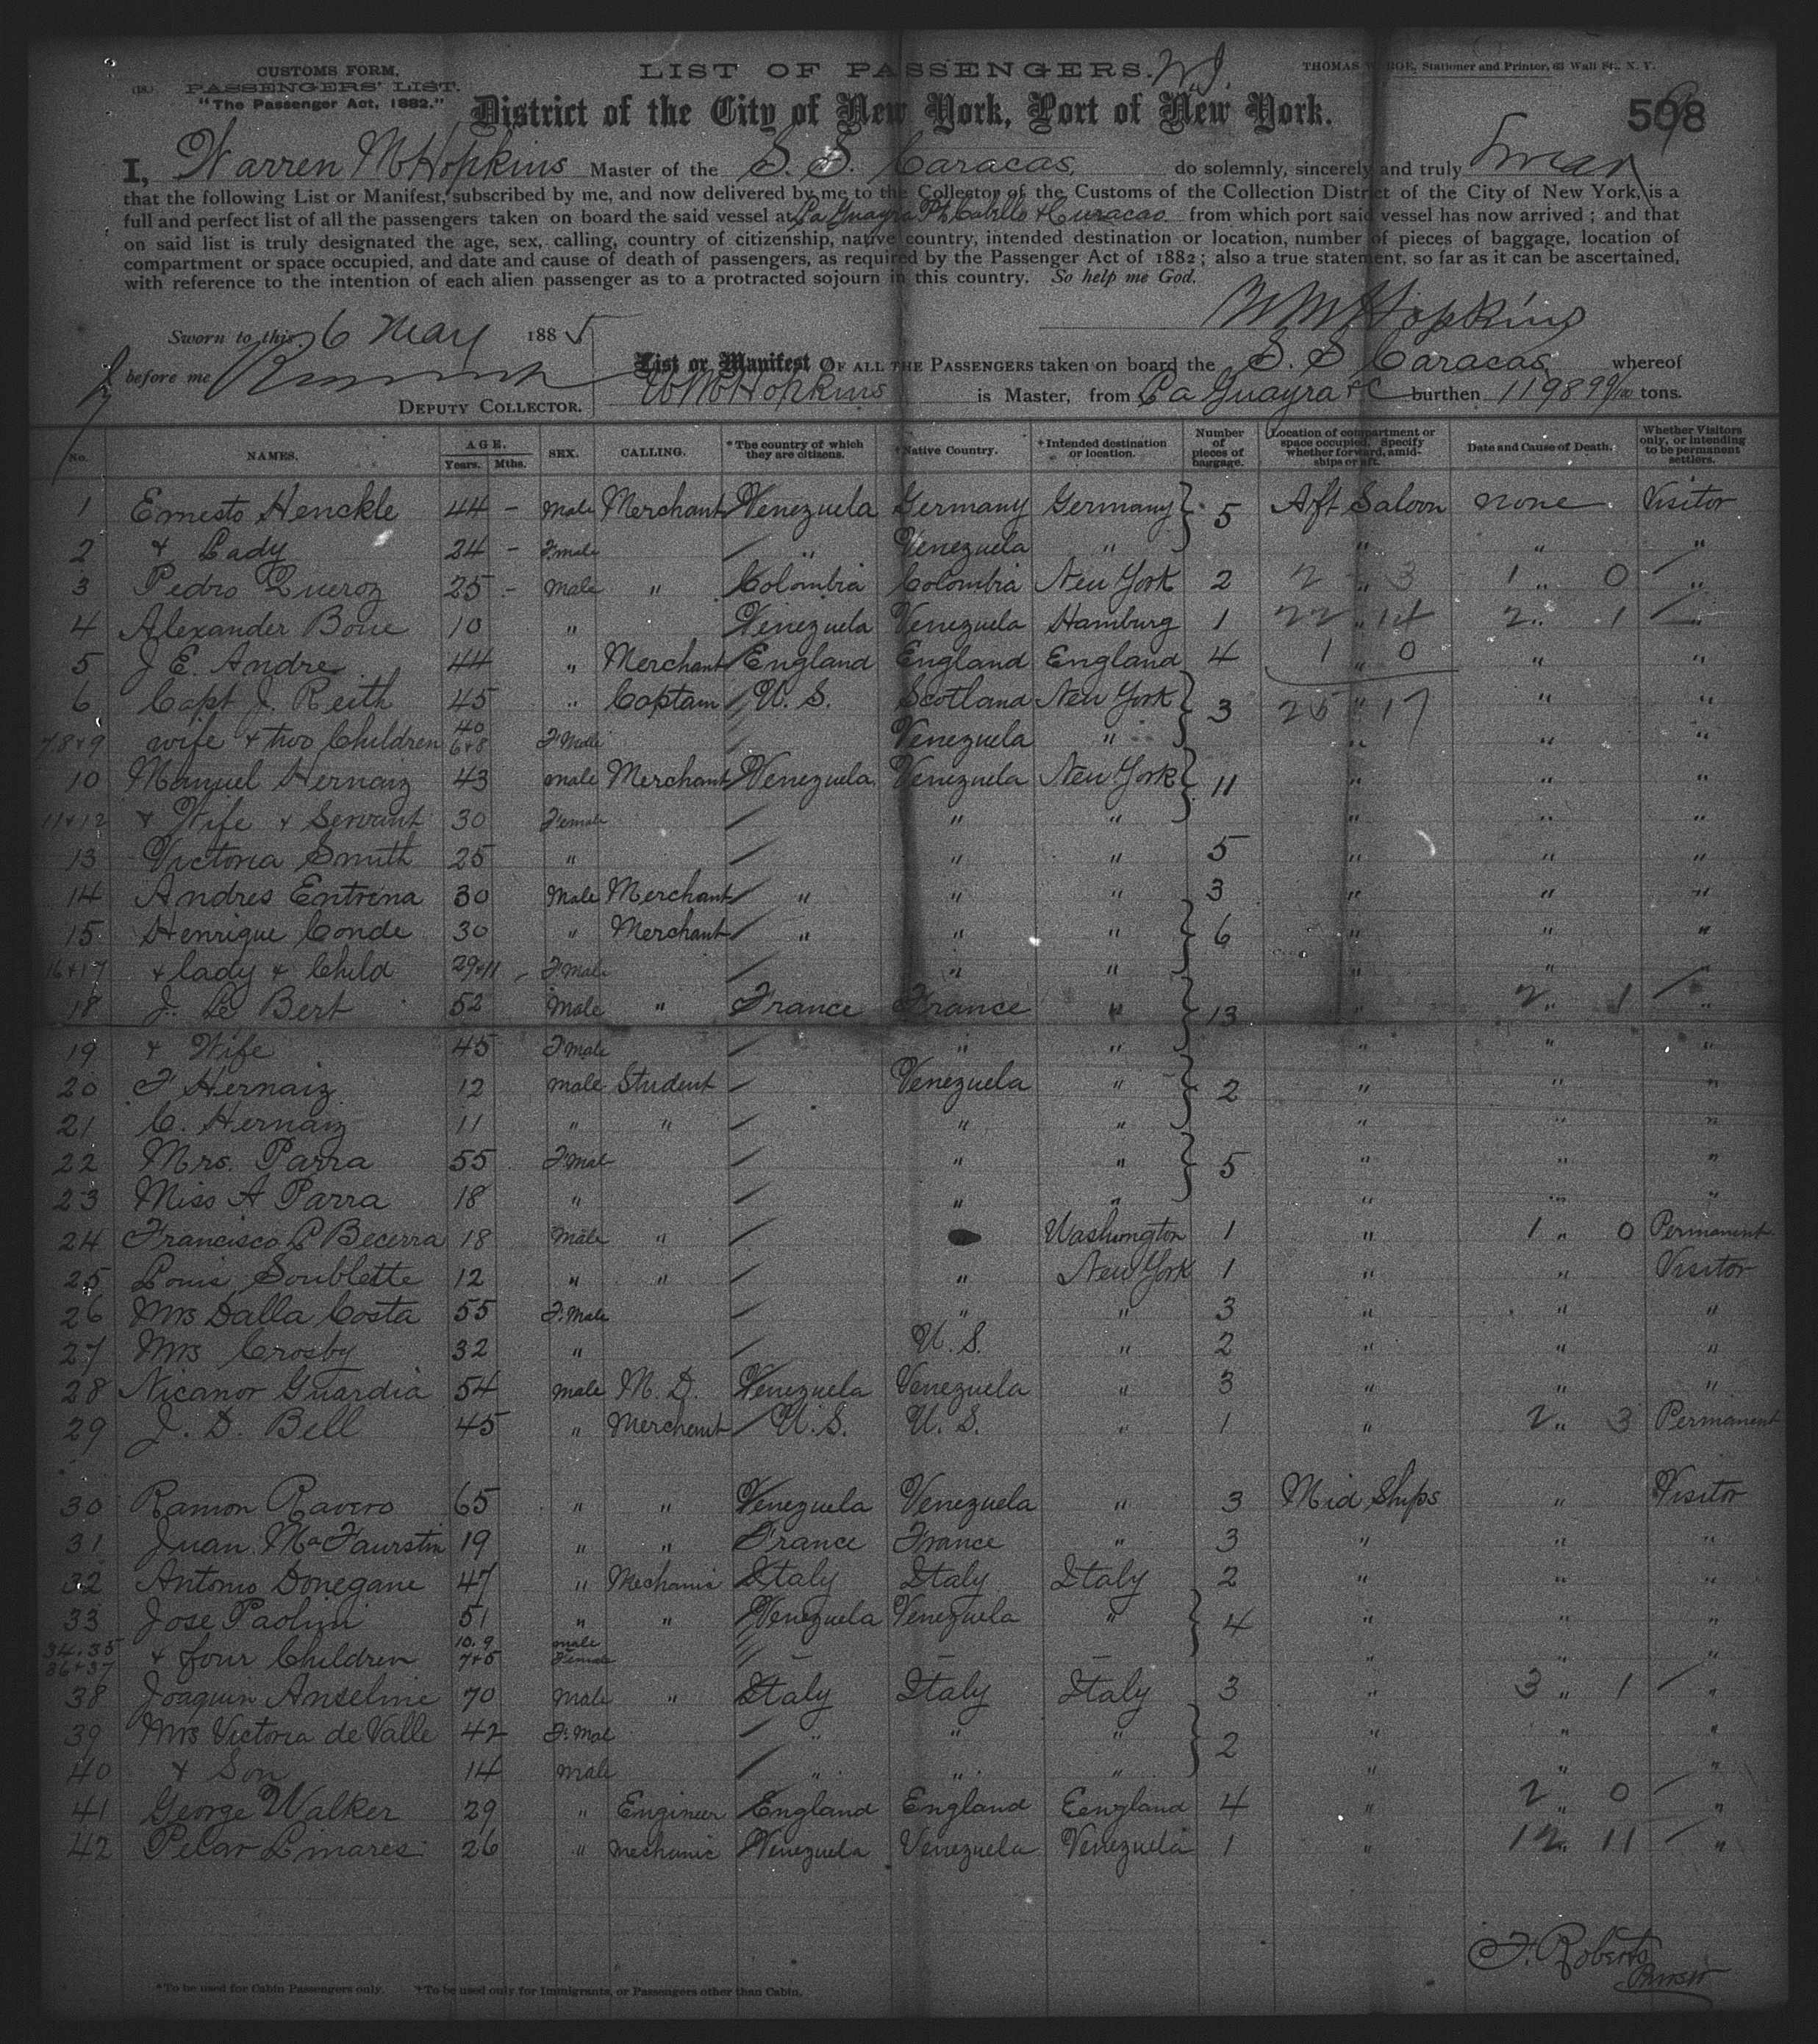 CUSTOMS FORM.
PASSENGERS' LIST.
"The Passenger Act, 1882."
LIST OF PASSENGERS.
THOMAS W. ROE, Stationer and Printer, 63 Wall St., N. Y.
District of the City of New York, Port of New York.
508
I, Warren M Hopkins Master of the S. S. Caracas, do solemnly, sincerely and truly Swear
that the following List or Manifest, subscribed by me, and now delivered by me to the Collector of the Customs of the Collection District of the City of New York, is a
full and perfect list of all the passengers taken on board the said vessel at La Guayra Pto Cabello & Curacao from which port said vessel has now arrived; and that
on said list is truly designated the age, sex, calling, country of citizenship, native country, intended destination or location, number of pieces of baggage, location of
compartment or space occupied, and date and cause of death of passengers, as required by the Passenger Act of 1882; also a true statement, so far as it can be ascertained,
with reference to the intention of each alien passenger as to a protracted sojourn in this country. So help me God.
W M Hopkins
Sworn to this 6 May 1885
before me
DEPUTY COLLECTOR.
List or Manifest OF ALL THE PASSENGERS taken on board the S. S Caracas whereof
W M Hopkins is Master, from La Guayra & C burthen 1198 99/100 tons.
No. NAMES. AGE. Years. Mths. SEX. CALLING. *The country of which they are citizens. †Native Country. †Intended destination or location. Number of pieces of baggage. Location of compartment or space occupied. Specify whether forward, amidships or aft. Date and Cause of Death. Whether Visitors only, or intending to be permanent settlers.
1 Ernesto Henckle 44 - Male Merchant Venezuela Germany Germany 5 Aft Saloon none Visitor
2 & Lady 24 - F.male " Venezuela " " " "
3 Pedro Queroz 25 - Male " Colombia Colombia New York 2 2 " 3 1 " 0 "
4 Alexander Boue 10 " Venezuela Venezuela Hamburg 1 22 " 14 2 " 1 "
5 J E. Andre 44 " Merchant England England England 4 1 " 0 " "
6 Capt J. Reith 45 " Captain U. S. Scotland New York 3 25 " 17 " "
7.8&9 wife & two Children 40 6&8 F Male Venezuela " " " "
10 Manuel Hernaiz 43 male Merchant Venezuela Venezuela New York 11 " " "
11&12 & Wife & Servant 30 Female " " " " "
13 Victoria Smith 25 " " " 5 " " "
14 Andres Entrena 30 Male Merchant " " " 3 " " "
15 Henrique Conde 30 " Merchant " " " 6 " " "
16&17 & lady & Child 29&11 F.Male " " " " "
18 J. Le Bert 52 Male " France France " 13 " 2 " 1 "
19 & Wife 45 F male " " " " "
20 F Hernaiz 12 male Student Venezuela " 2 " " "
21 C. Hernaiz 11 " " " " " " "
22 Mrs. Parra 55 F Mal " " 5 " " "
23 Miss A Parra 18 " " " " " "
24 Francisco L Becerra 18 Male " Washington 1 " 1 " 0 Permanent
25 Louis Soublette 12 " " " New York 1 " " Visitor
26 Mrs Dalla Costa 55 F.Male " " 3 " " "
27 Mrs Crosby 32 " U. S. " 2 " " "
28 Nicanor Guardia 54 male M. D. Venezuela Venezuela " 3 " " "
29 J. D. Bell 45 " Merchant U. S. U. S. " 1 " 2 " 3 Permanent
30 Ramon Ravero 65 " " Venezuela Venezuela " 3 Mid Ships " Visitor
31 Juan Ma Faurstin 19 " " France France " 3 " " "
32 Antonio Donegane 47 " Mechanic Italy Italy Italy 2 " " "
33 Jose Paolini 51 " " Venezuela Venezuela " 4 " " "
34.35 36&37 & four Children 10.9 7&5 male Female " " "
38 Joaquin Anselmie 70 Male " Italy Italy Italy 3 " 3 " 1 "
39 Mrs Victoria de Valle 42 F.Mal " " " 2 " " "
40 & Son 14 male " " " " " "
41 George Walker 29 " Engineer England England Eengland 4 " 2 " 0 "
42 Pelar Linares 26 " mechanic Venezuela Venezuela Venezuela 1 " 12 " 11 "
F. Roberts
Purser
*To be used for Cabin Passengers only. †To be used only for Immigrants, or Passengers other than Cabin.